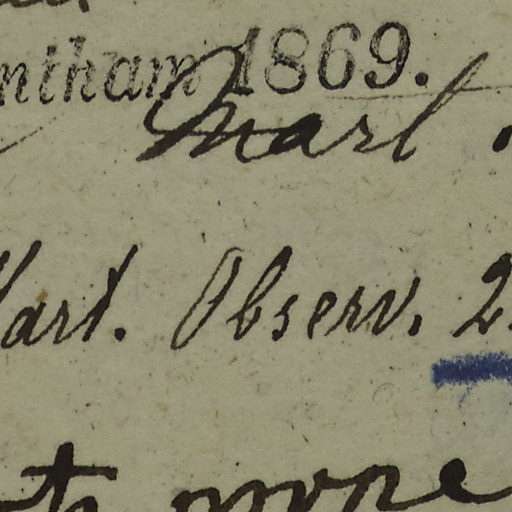 ntham 1869.
Marl.
art. Observ. 2.
more